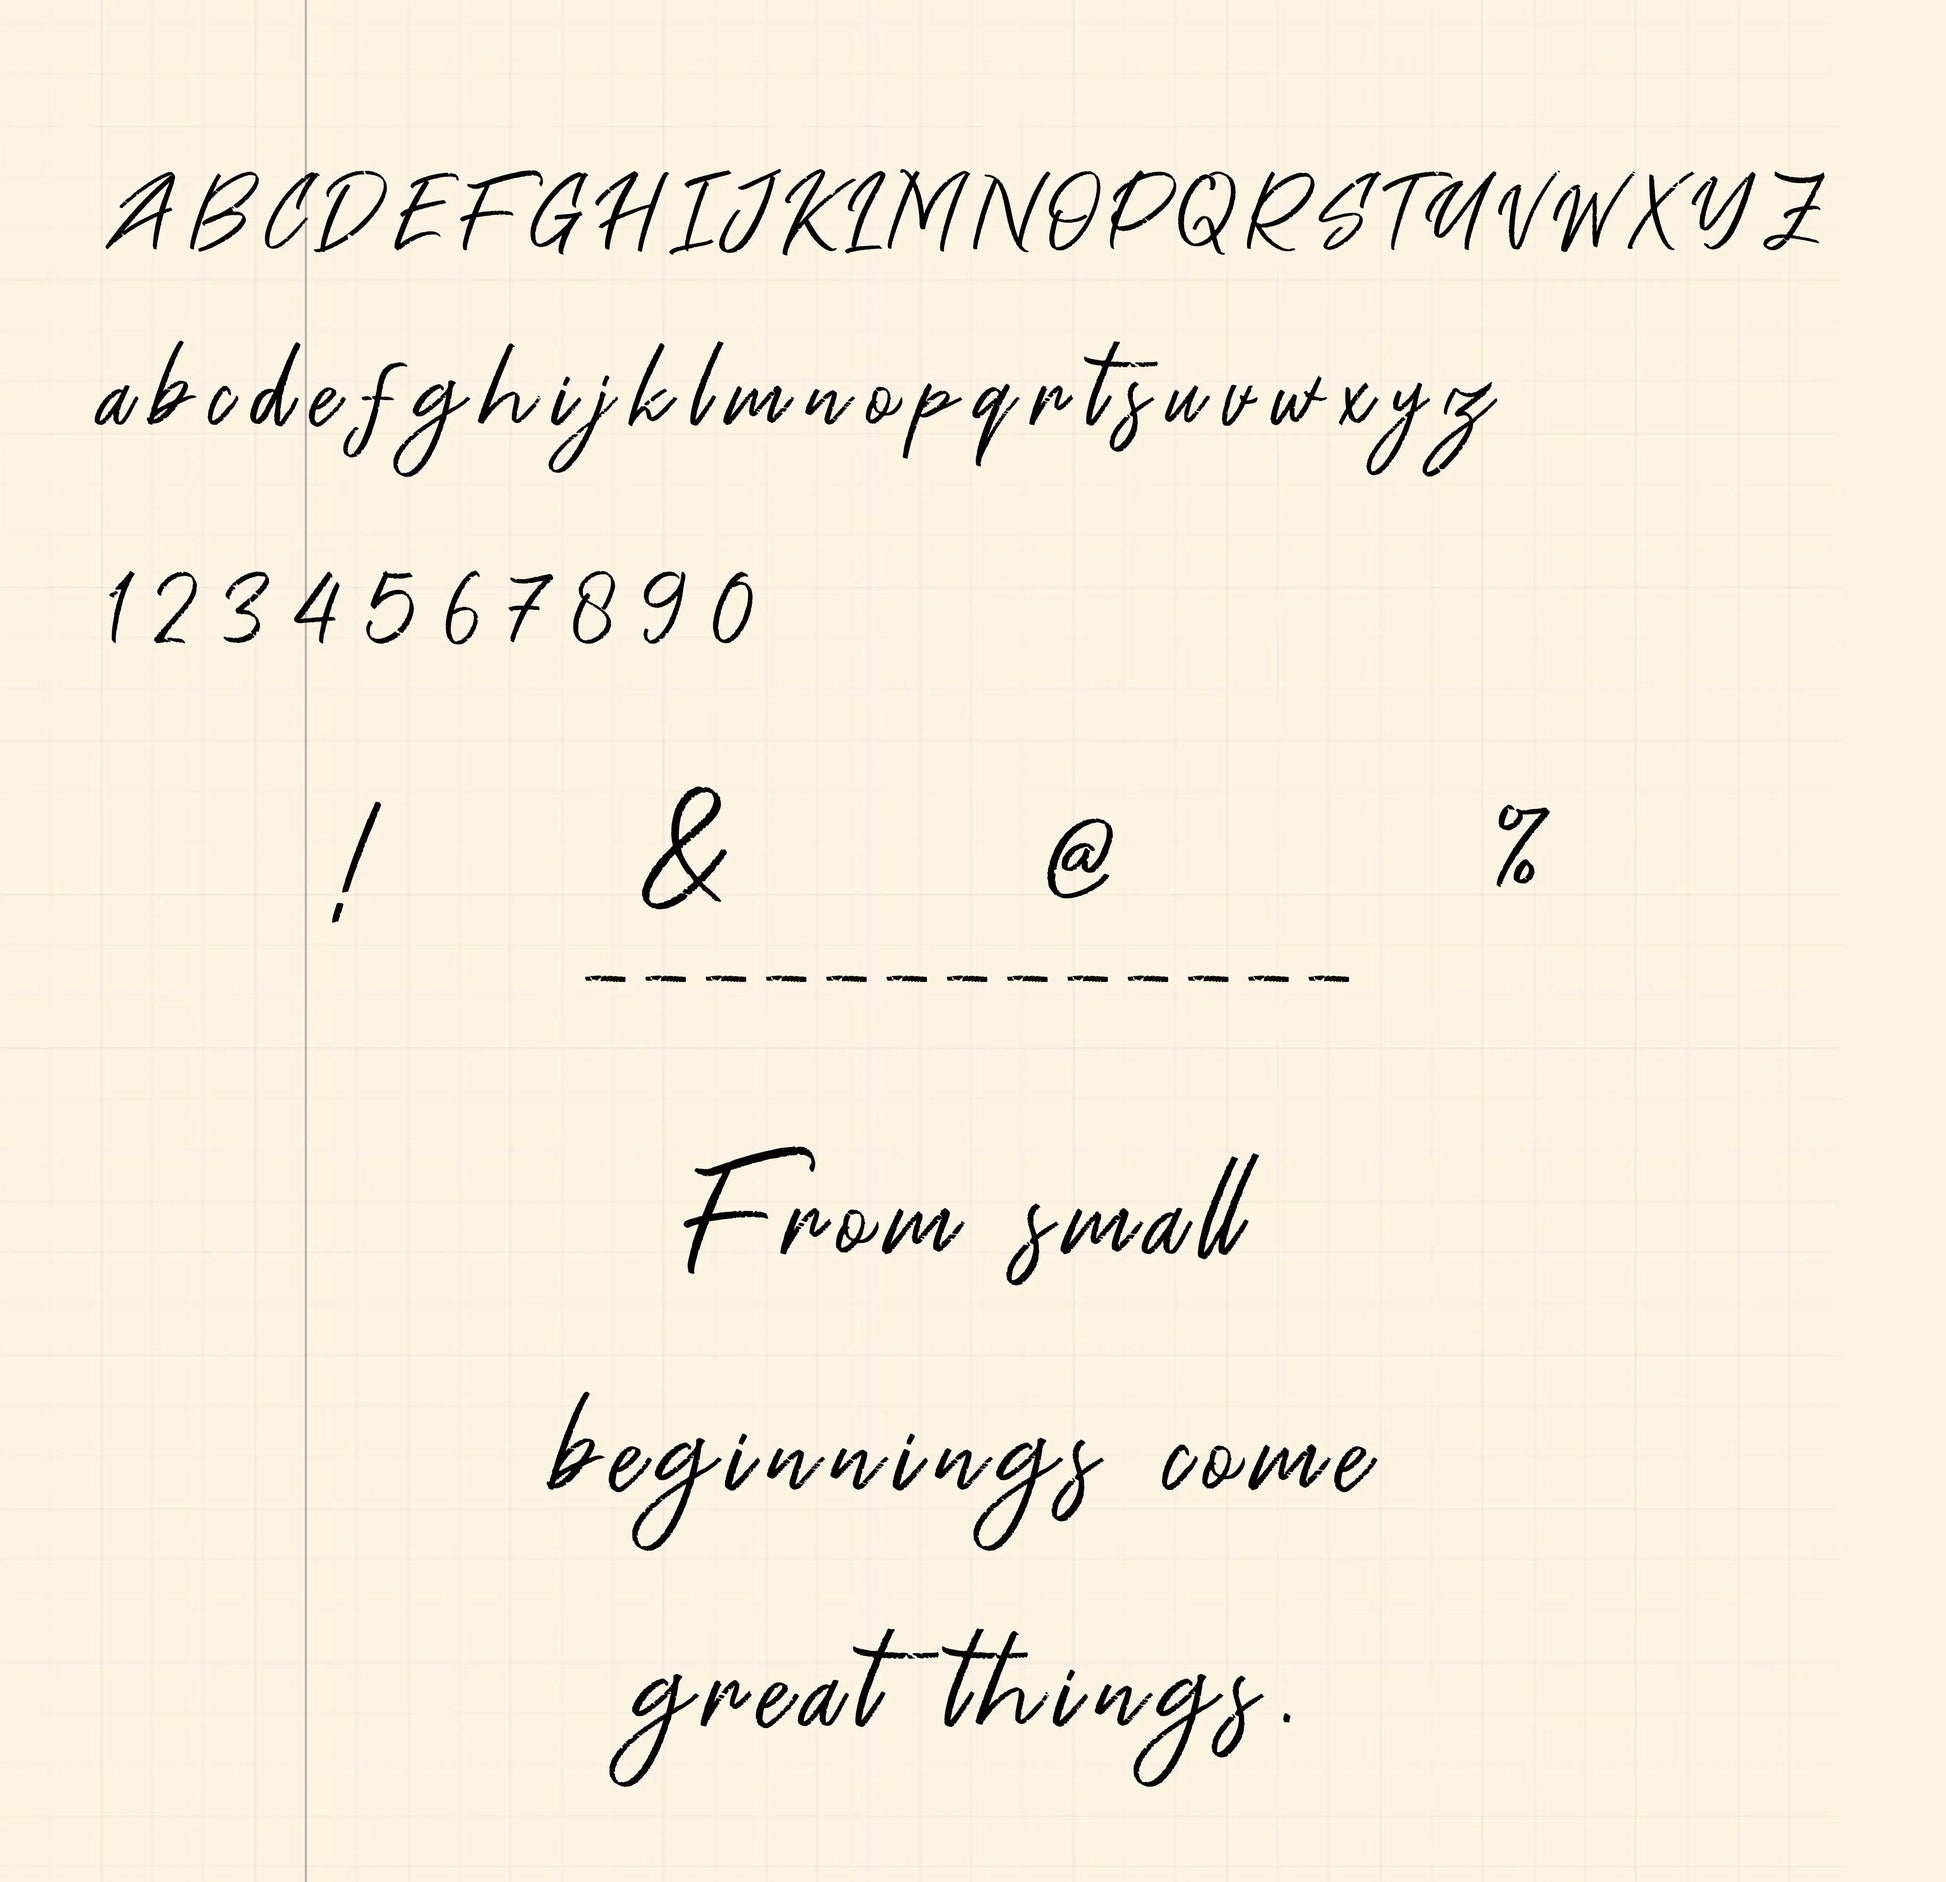 A B C D E F G H I J K L M N O P Q R S T U V W X Y Z
a b c d e f g h i j k l m n o p q r t s u v w x y z
1 2 3 4 5 6 7 8 9 0
! & @ %
_ _ _ _ _ _ _ _ _ _ _ _ _
From small
beginnings come
great things.